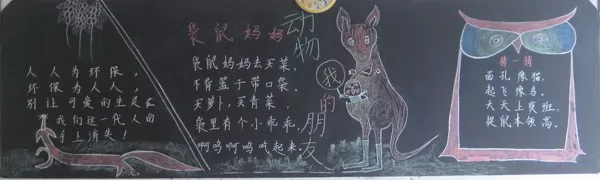 人人为环保，
环保为人人，
别让可爱的生灵在
我们这一代人的
手上消失！
袋鼠妈妈
袋鼠妈妈去买菜，
不背篮子带口袋。
买萝卜，买青菜，
袋里有个小乖乖，
啊呜啊呜吃起来。
动物
我
的
朋友
猜一猜
面孔像猫，
起飞像鸟，
天天上夜班，
捉鼠本领高。